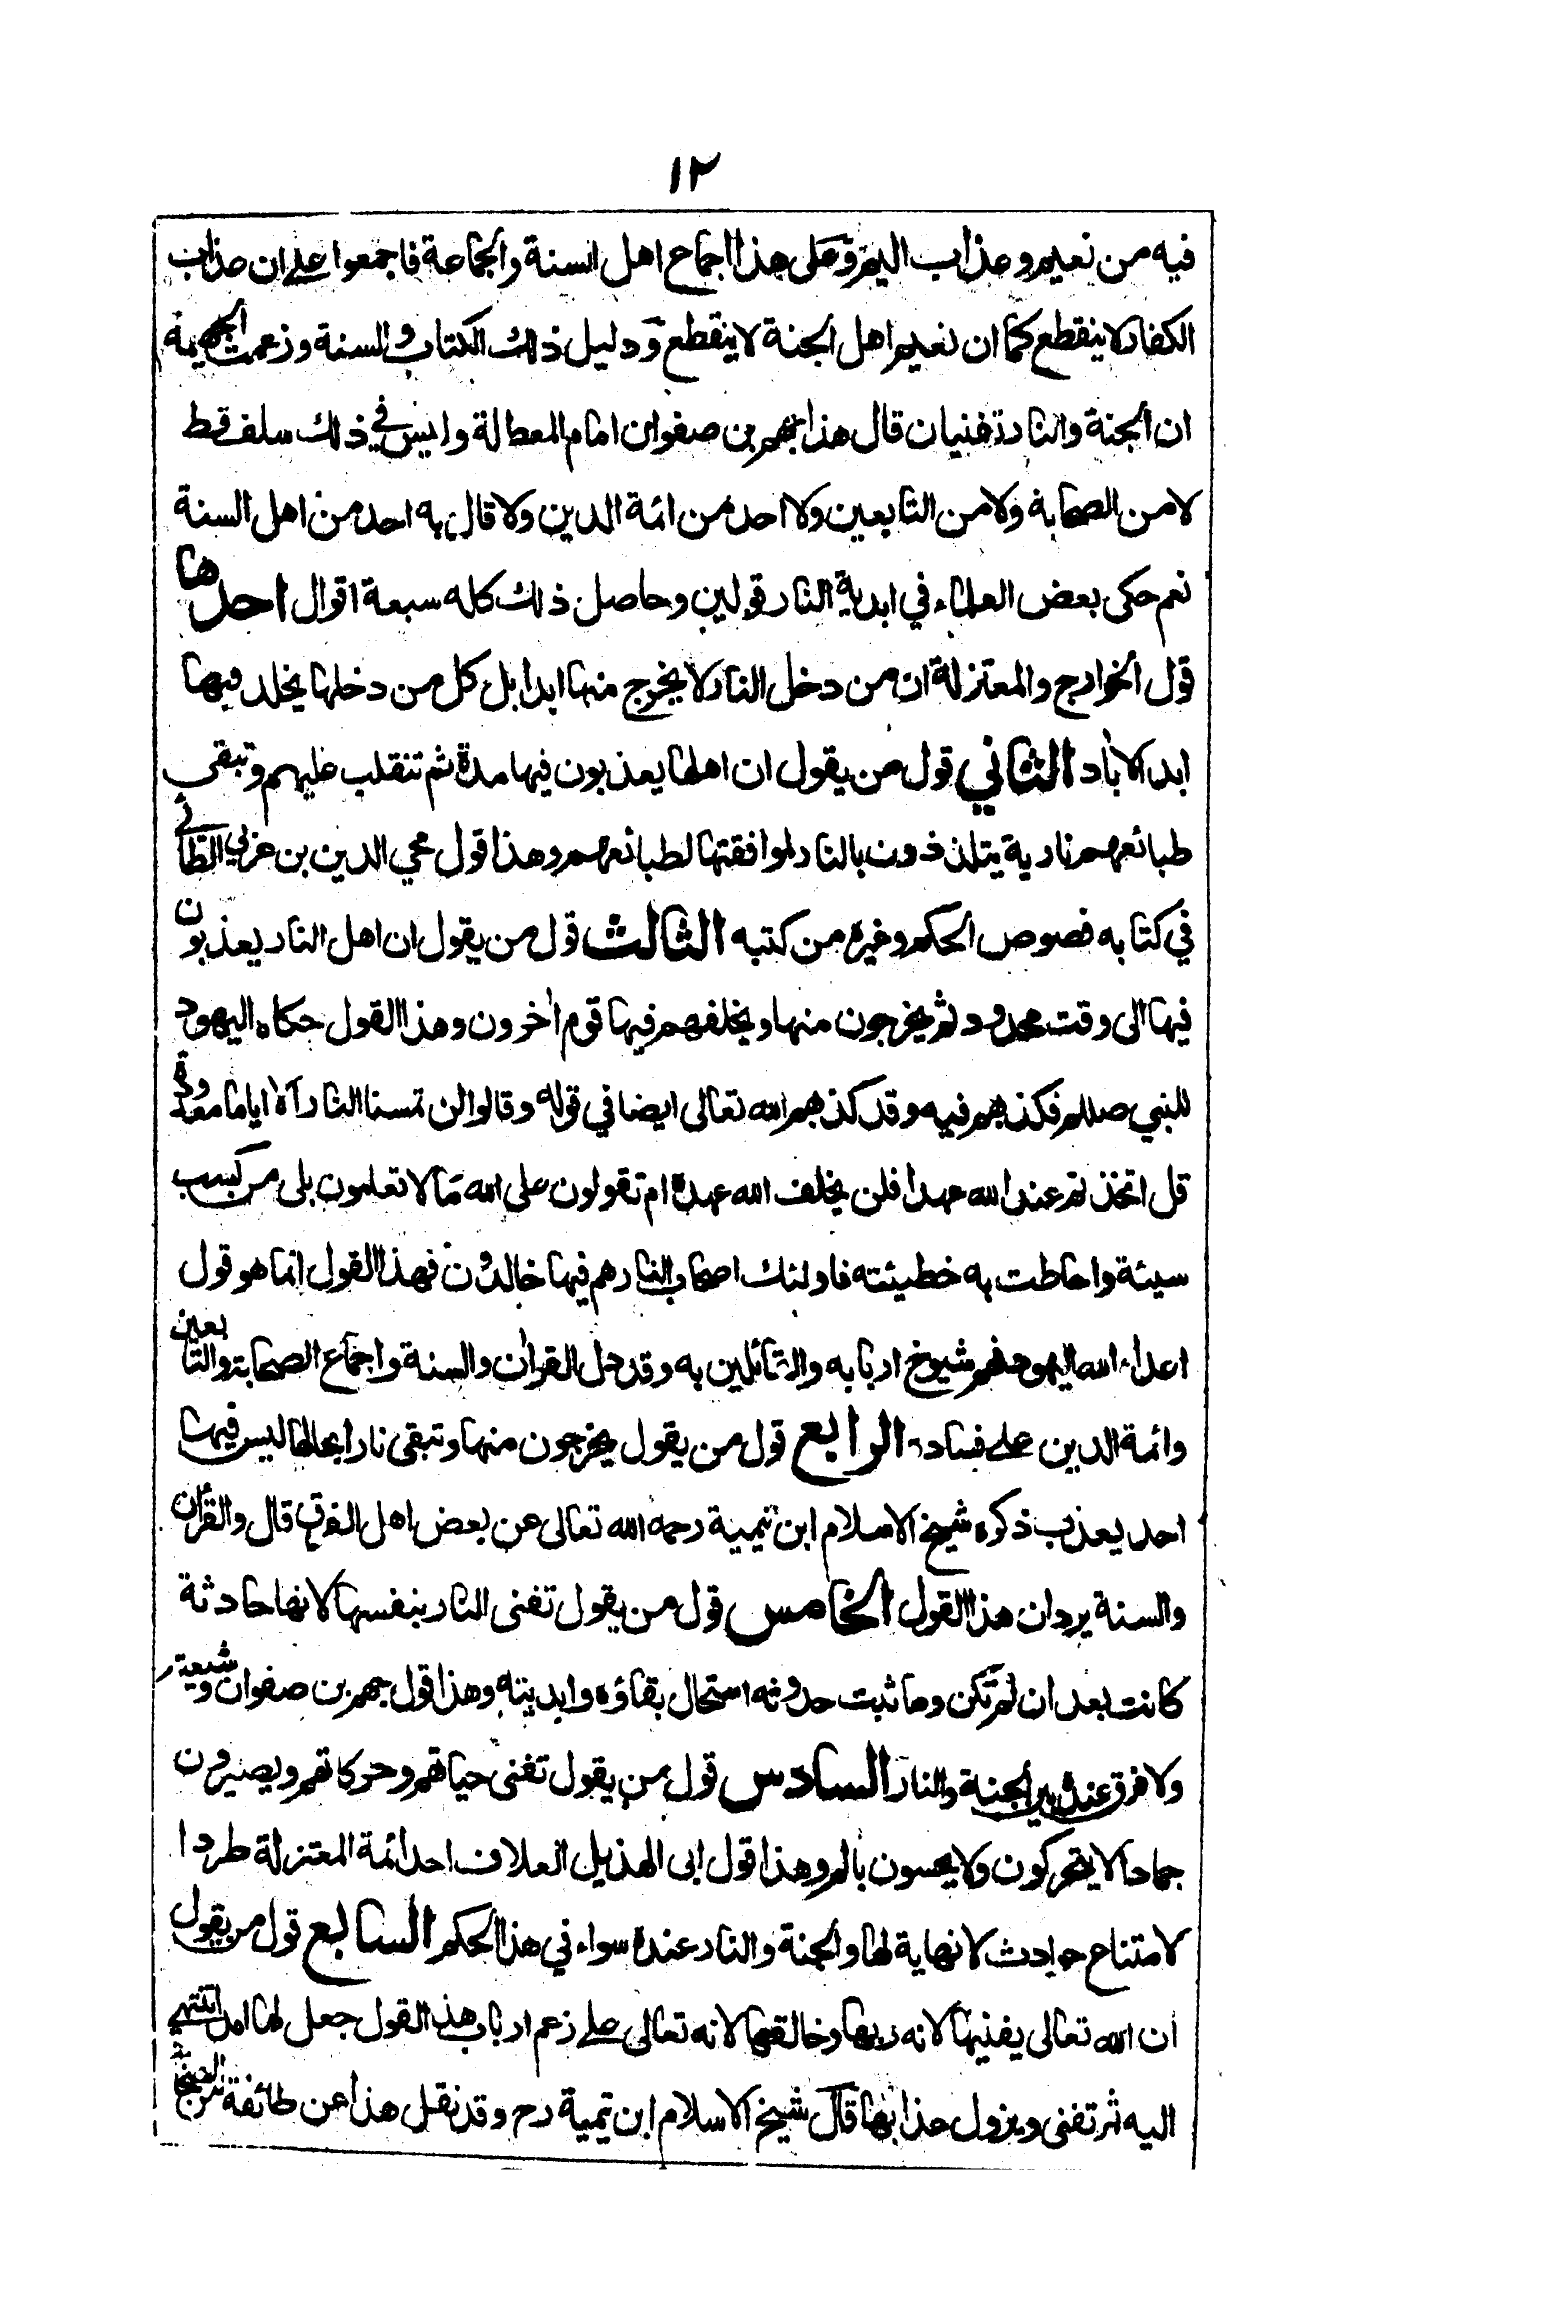 ١٢
فيه من نعيم وعذاب اليم وعلى هذا اجماع اهل السنة والجماعة فاجمعوا على ان عذاب
الكفار لا ينقطع كما ان نعيم اهل الجنة لا ينقطع ودليل ذلك الكتاب والسنة وزعمت الجهمية
ان الجنة والنار تفنيان قال هذا جهم بن صفوان امام المعطلة وليس في ذلك سلف قط
لا من الصحابة ولا من التابعين ولا احد من ائمة الدين ولا قال به احد من اهل السنة
نعم حكى بعض العلماء في ابدية النار قولين وحاصل ذلك كله سبعة اقوال احدها
قول الخوارج والمعتزلة ان من دخل النار لا يخرج منها ابدا بل كل من دخلها يخلد فيها
ابد الآباد الثاني قول من يقول ان اهلها يعذبون فيها مدة ثم تنقلب عليهم وتبقى
طبائعهم نارية يتلذذون بالنار لموافقتها لطبائعهم وهذا قول محي الدين بن عربي الطائي
في كتابه فصوص الحكم وغيره من كتبه الثالث قول من يقول ان اهل النار يعذبون
فيها الى وقت محدود ثم يخرجون منها ويخلفهم فيها قوم آخرون وهذا القول حكاه اليهود
للنبي صللم فكذبهم فيه وقد كذبهم الله تعالى ايضا في قوله وقالوا لن تمسنا النار الا اياما معدودة
قل اتخذتم عند الله عهدا فلن يخلف الله عهده ام تقولون على الله ما لا تعلمون بلى من كسب
سيئة واحاطت به خطيئته فاولئك اصحاب النار هم فيها خالدون فهذا القول انما هو قول
اعداء الله اليهود فهم شيوخ اربابه والقائلين به وقد دل القرآن والسنة واجماع الصحابة والتابعين
وائمة الدين على فساده الرابع قول من يقول يخرجون منها وتبقى نارا بحالها ليس فيها
احد يعذب ذكره شيخ الاسلام ابن تيمية رحمه الله تعالى عن بعض اهل الفرق قال والقرآن
والسنة يردان هذا القول الخامس قول من يقول تفنى النار بنفسها لانها حادثة
كانت بعد ان لم تكن وما ثبت حدوثه استحال بقاؤه وابديته وهذا قول جهم بن صفوان وشيعته
ولا فرق عنده بين الجنة والنار السادس قول من يقول تفنى حياتهم وحركاتهم ويصيرون
جمادا لا يتحركون ولا يحسون بالم وهذا قول ابى الهذيل العلاف احد ائمة المعتزلة طردا
لامتناع حوادث لا نهاية لها والجنة والنار عنده سواء في هذا الحكم السابع قول من يقول
ان الله تعالى يفنيها لانه ربها وخالقها لانه تعالى على زعم ارباب هذا القول جعل لها امدا تنتهي
اليه ثم تفنى ويزول عذابها قال شيخ الاسلام ابن تيمية رح وقد نقل هذا عن طائفة من الصحابة